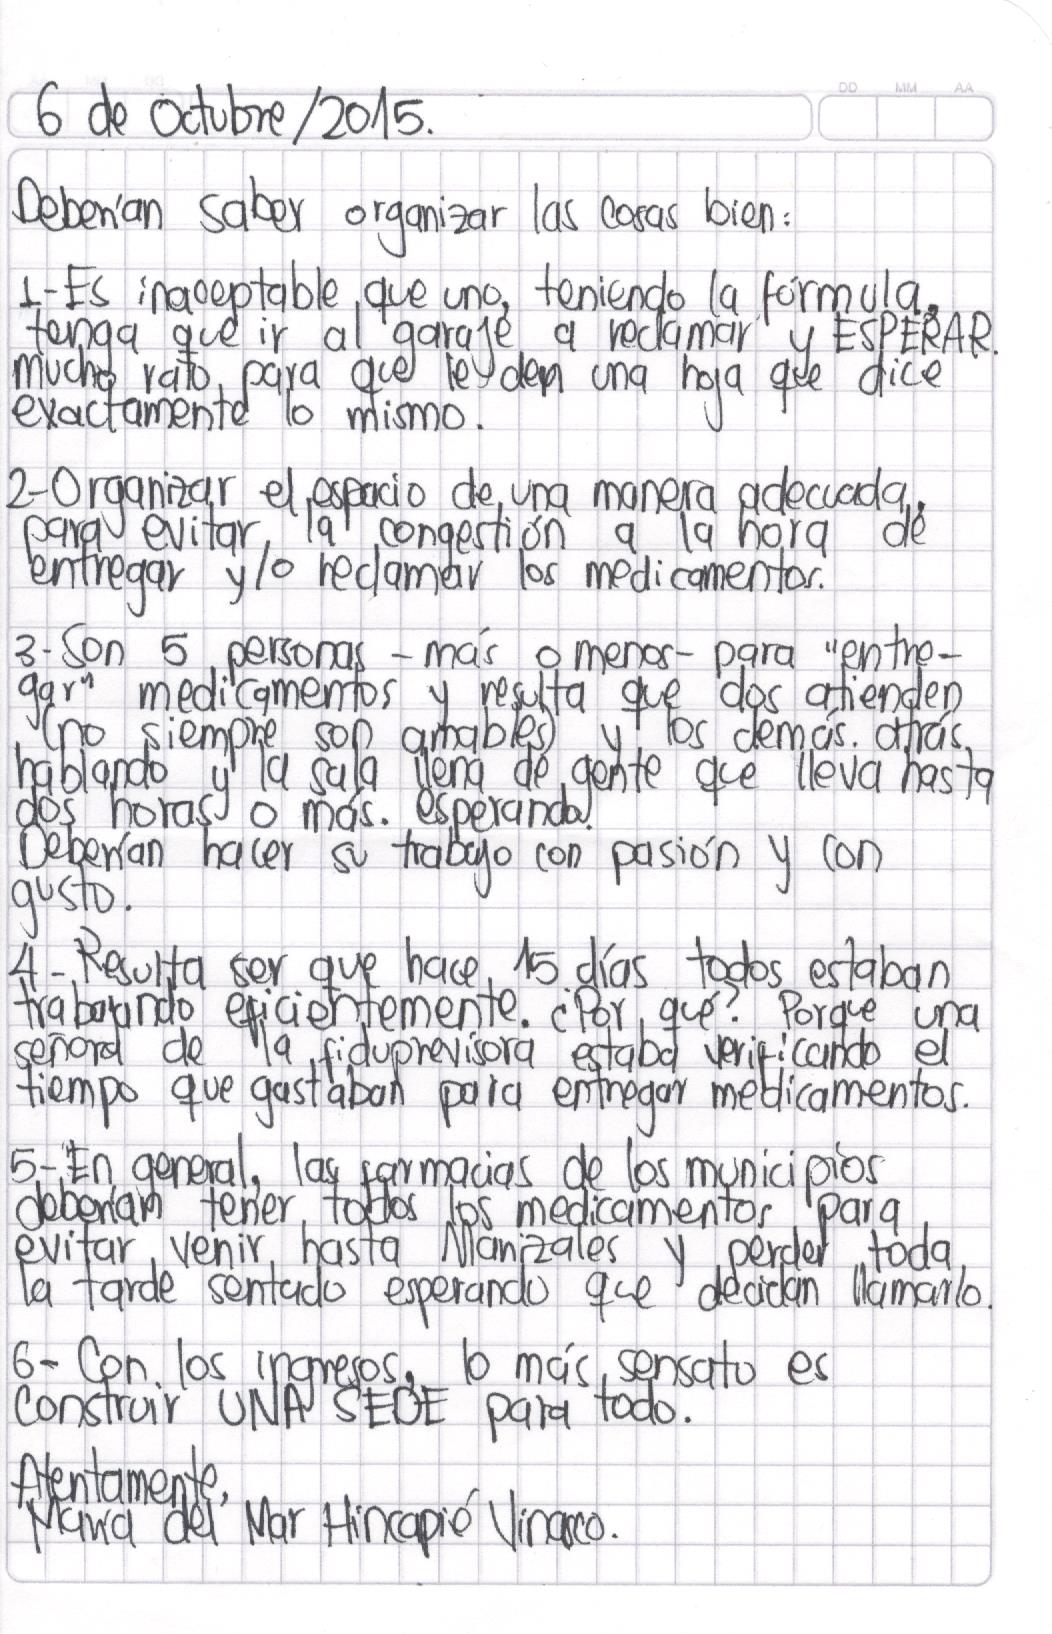 DD MM AA
6 de Octubre/2015.
Deberían saber organizar las cosas bien:
1-Es inaceptable que uno, teniendo la fórmula,
tenga que ir al garaje a reclamar y ESPERAR
mucho rato, para que le den una hoja que dice
exactamente lo mismo.
2-Organizar el espacio de una manera adecuada,
para evitar la congestión a la hora de
entregar y/o reclamar los medicamentos.
3-Son 5 personas -más o menos- para "entre-
gar" medicamentos y resulta que dos atienden
(no siempre son amables) y los demás. atrás,
hablando y la sala llena de gente que lleva hasta
dos horas o más. esperando.
Deberían hacer su trabajo con pasión y con
gusto.
4-Resulta ser que hace 15 días todos estaban
trabajando eficientemente. ¿Por qué? Porque una
señora de la fiduprevisora estaba verificando el
tiempo que gastaban para entregar medicamentos.
5-En general, las farmacias de los municipios
deberían tener todos los medicamentos para
evitar venir hasta Manizales y perder toda
la tarde sentado esperando que decidan llamarlo.
6- Con los ingresos, lo más sensato es
construir UNA SEDE para todo.
Atentamente,
María del Mar Hincapié Vinasco.